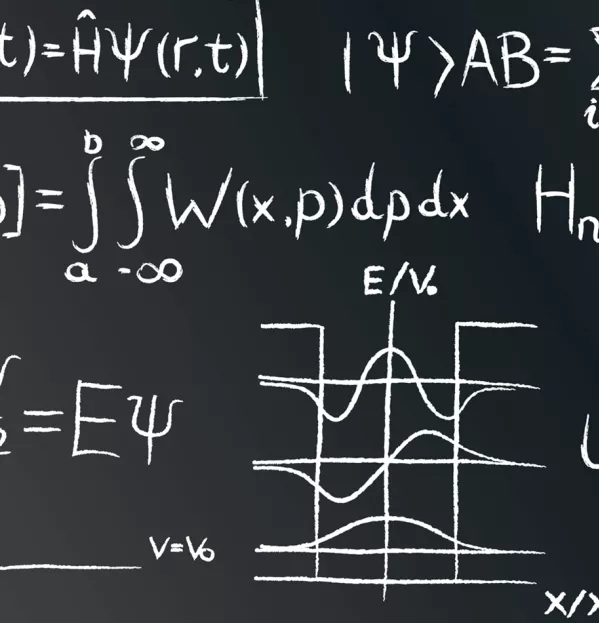 t)=ĤΨ(r,t) |Ψ>AB=
]=∫ₐᵇ∫₋∞^∞ W(x,p)dpdx Hₙ
E/V₀
=Eψ
V=V₀
x/x